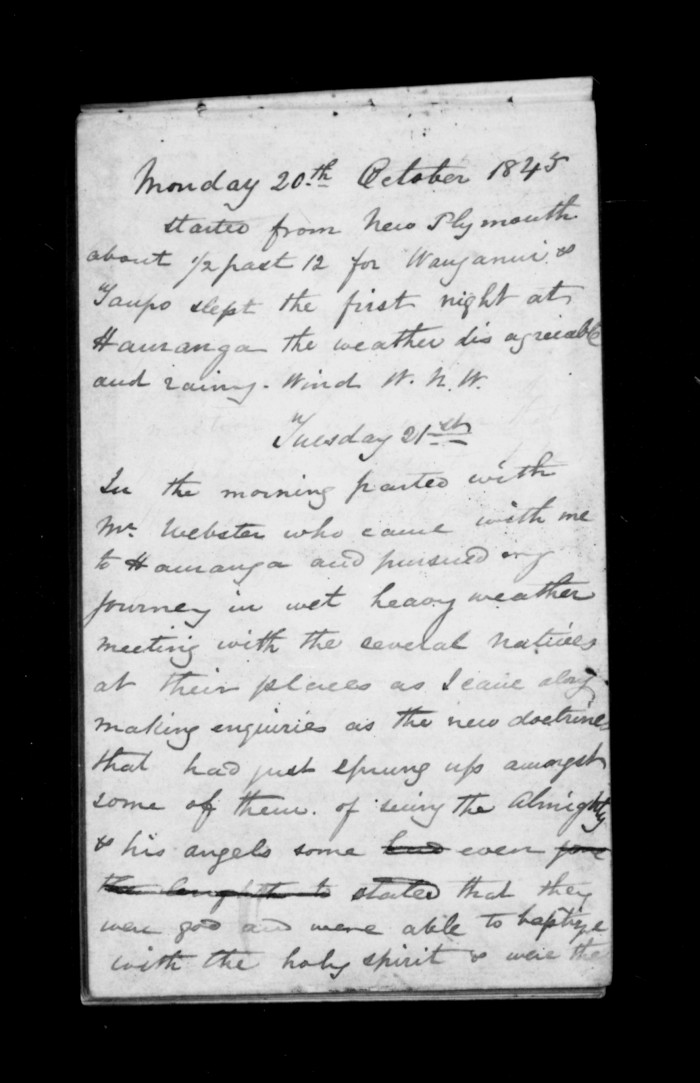 Monday 20th October 1845
started from New Plymouth
about 1/2 past 12 for Wanganui &
Taupo slept the first night at
Hauranga the weather disagreeable
and rainy. Wind W. N. W.
Tuesday 21st
In the morning parted with
Mr. Webster who came with me
to Hauranga and pursued my
journey in wet heavy weather
meeting with the several natives
at their places as I came along
making enquiries as the new doctrines
that had just sprung up amongst
some of them. of seing the Almighty
& his angels some had even gone
the lenghth to stated that they
were god and were able to baptize
with the holy spirit & were the